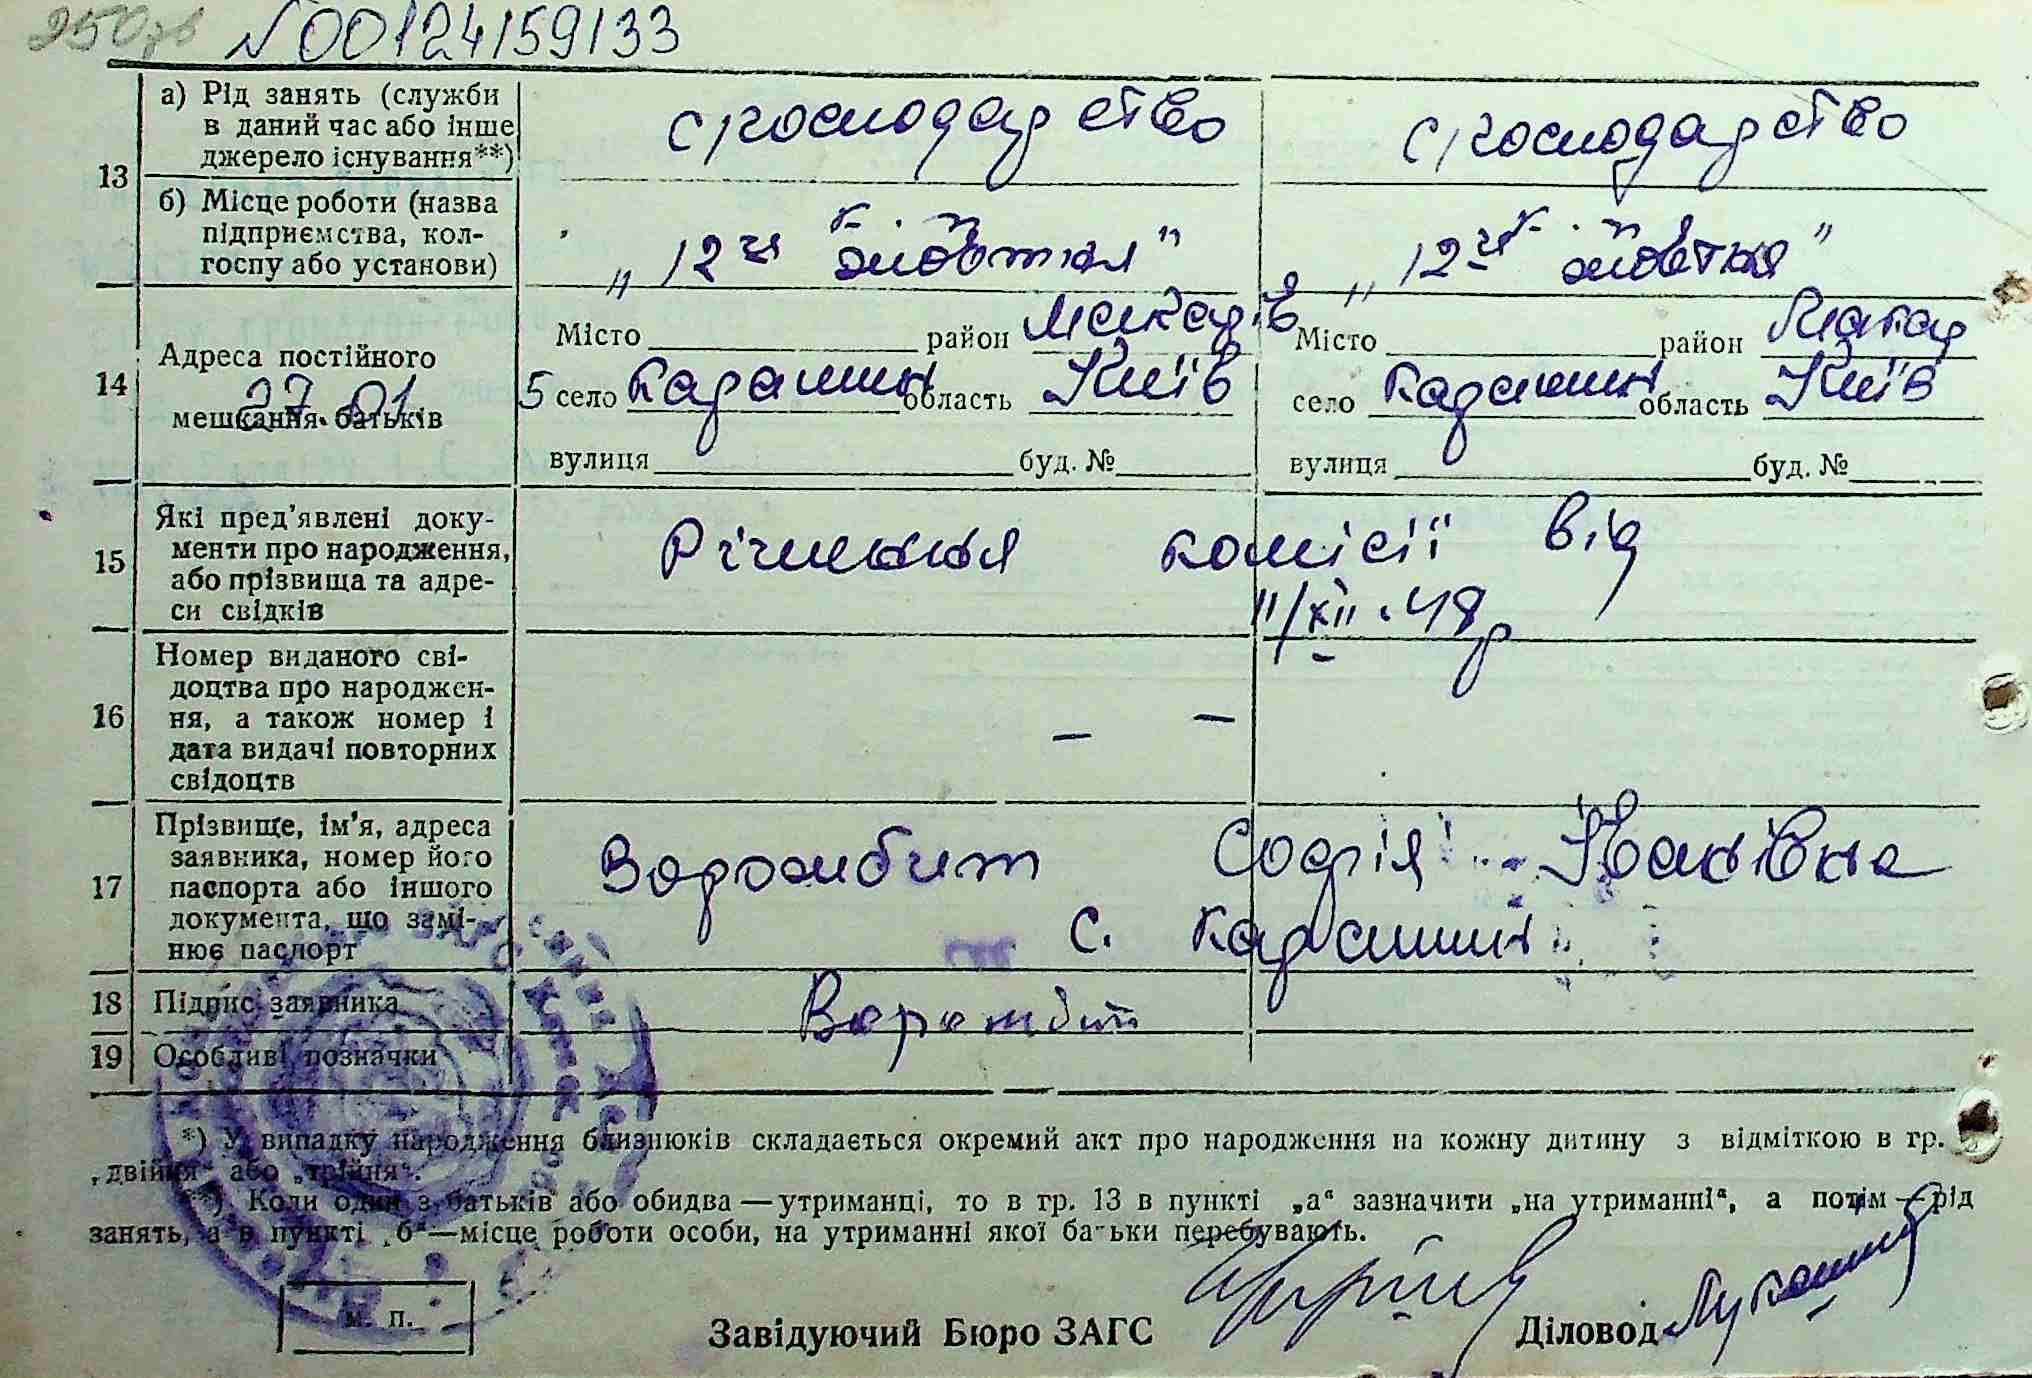 250зв №00124159133
13
а) Рід занять (служби
в даний час або інше
джерело існування**)
с/господарство
с/господарство
б) Місце роботи (назва
підприємства, кол-
госпу або установи)
„12 чя жовтня"
„12 чя жовтня"
14
Адреса постійного
мешкання батьків
27.01.
5
Місто район Макарів
село Карашин область Київ
вулиця буд. №
Місто район Макар
село Карашин область Київ
вулиця буд. №
15
Які пред'явлені доку-
менти про народження,
або прізвища та адре-
си свідків
Рішення комісії від
11/XII.48р
16
Номер виданого сві-
доцтва про народжен-
ня, а також номер і
дата видачі повторних
свідоцтв
— —
17
Прізвище, ім'я, адреса
заявника, номер його
паспорта або іншого
документа, що замі-
нює паспорт
Ворожбит Софія Іванівна
с. Карашин
18 Підпис заявника
Ворожбит
19 Особливі позначки
*) У випадку народження близнюків складається окремий акт про народження на кожну дитину з відміткою в гр.
„двійня" або „трійня".
**) Коли один з батьків або обидва — утриманці, то в гр. 13 в пункті „а" зазначити „на утриманні", а потім — рід
занять, а в пункті „б" — місце роботи особи, на утриманні якої батьки перебувають.
м. п.
Завідуючий Бюро ЗАГС
Діловод